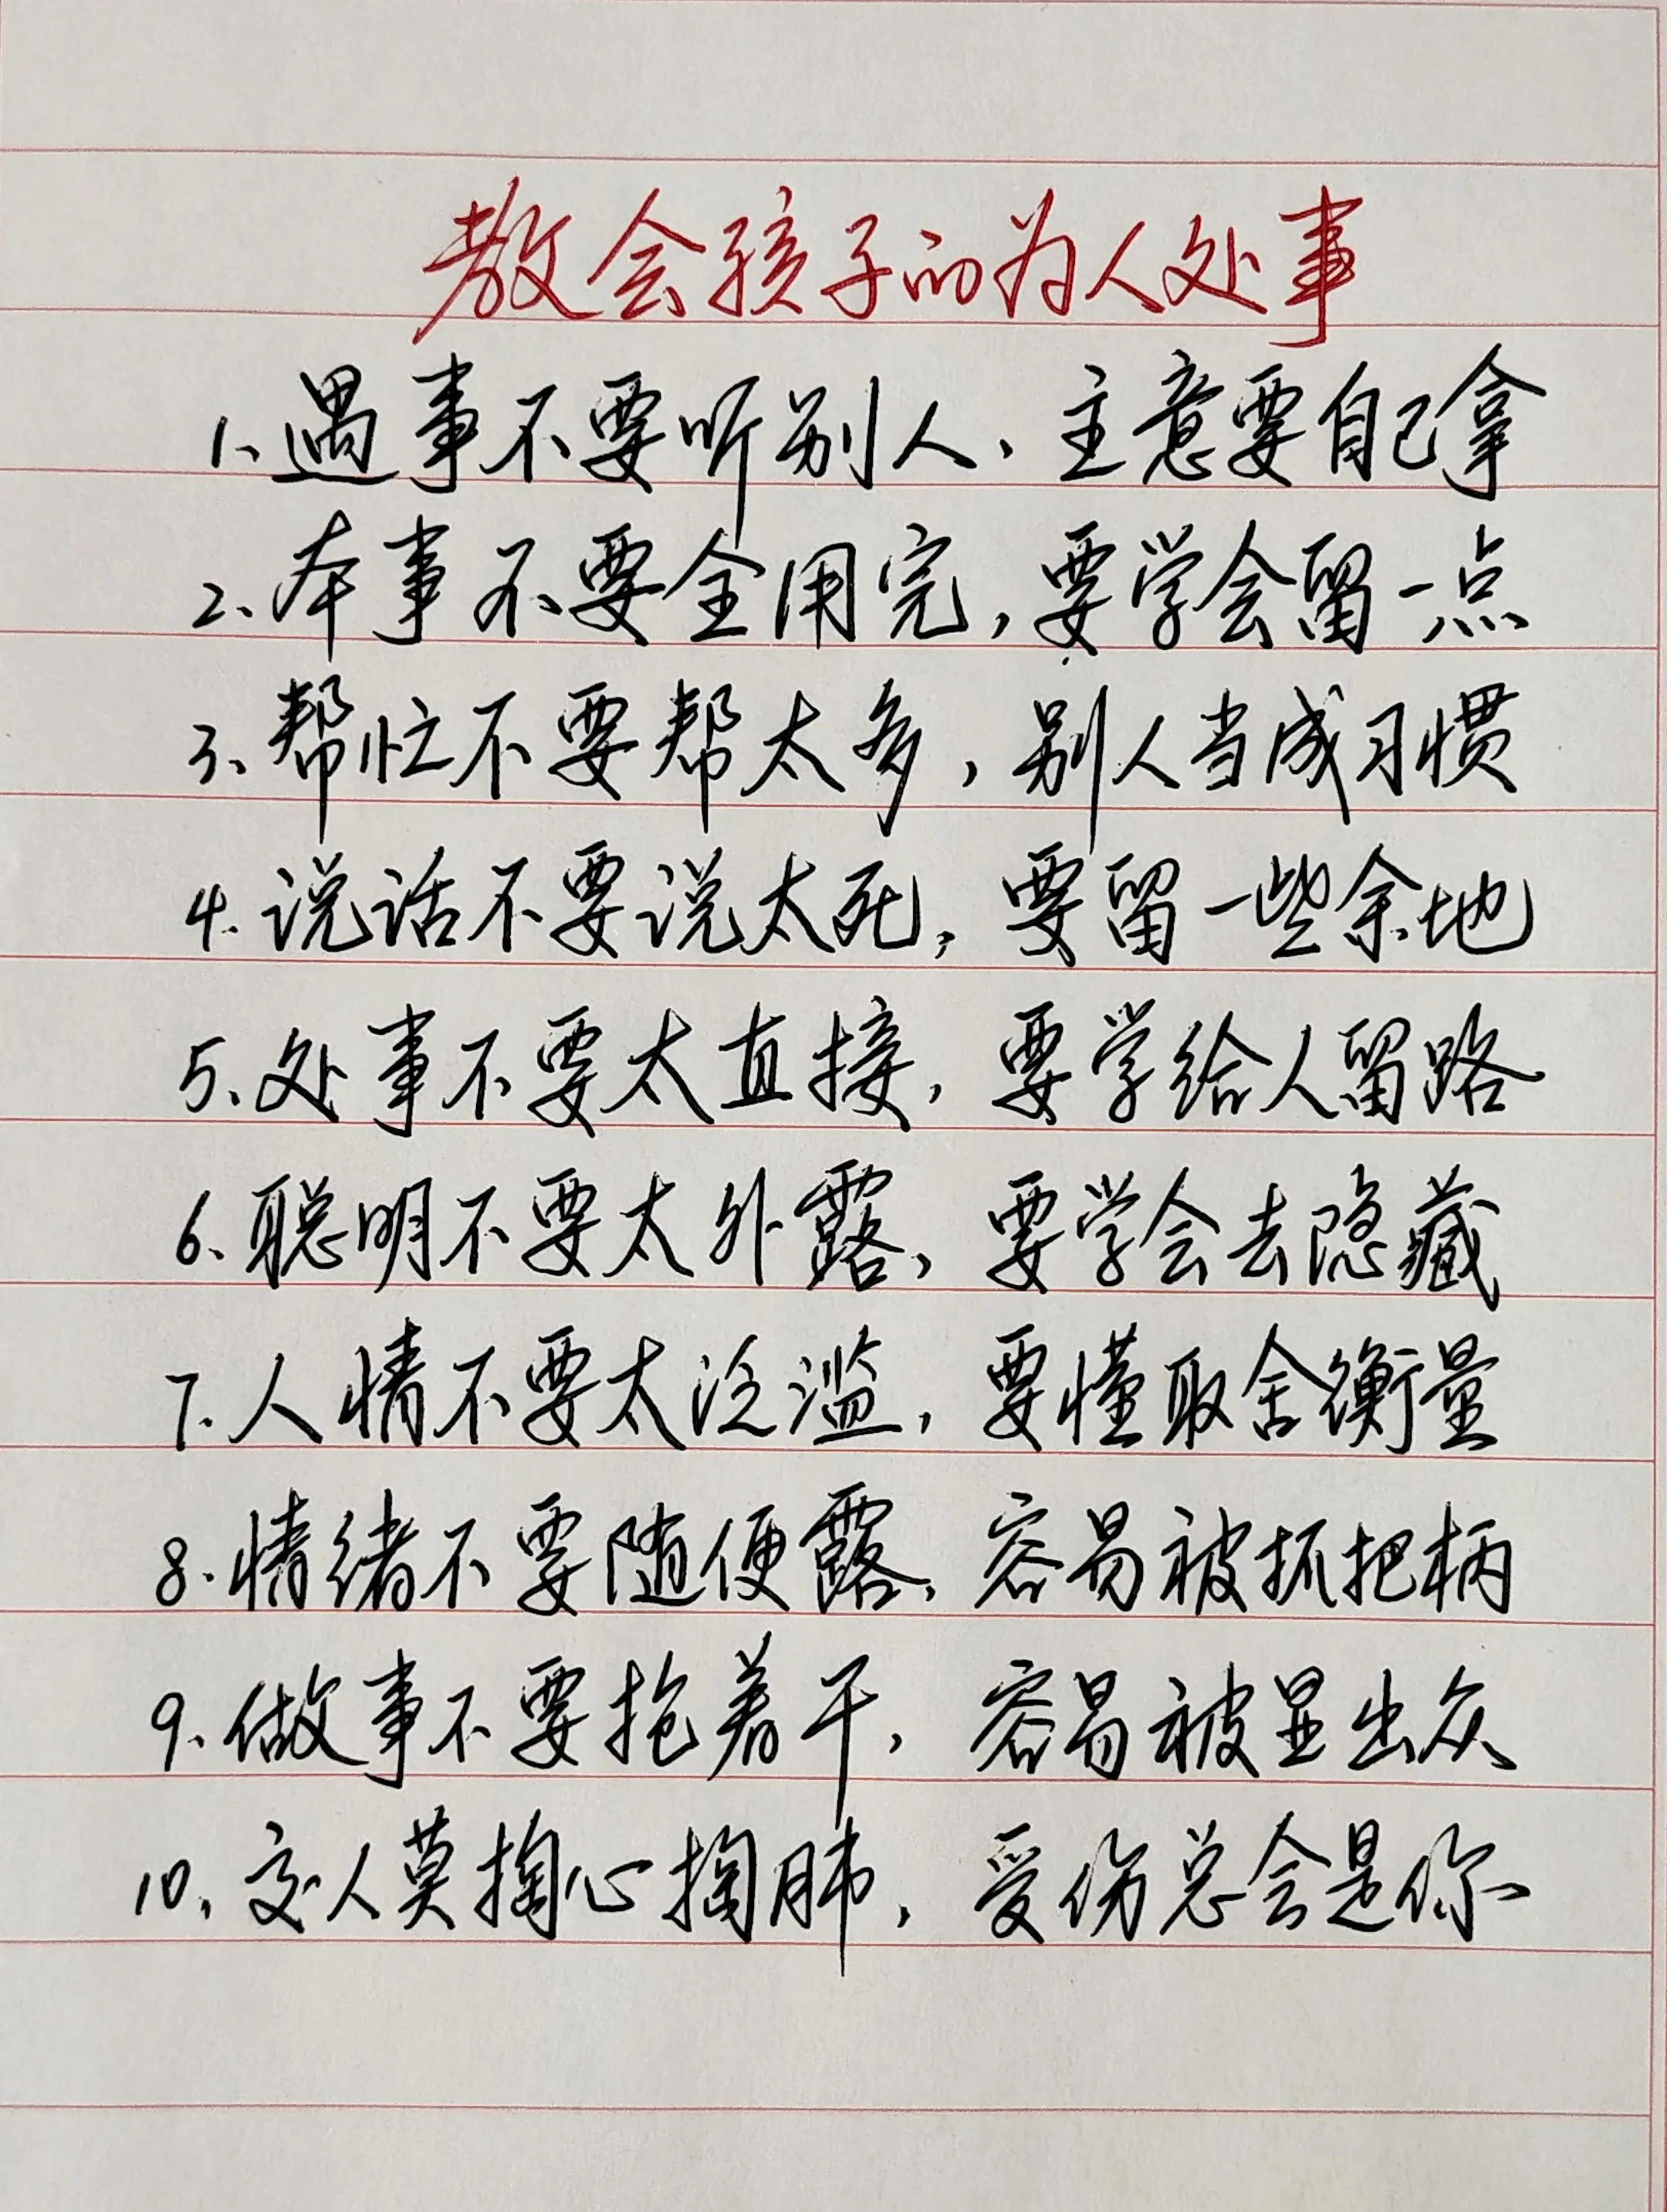 教会孩子的为人处事
1、遇事不要听别人、主意要自己拿
2、本事不要全用完，要学会留一点
3、帮忙不要帮太多，别人当成习惯
4、说话不要说太死，要留一些余地
5、处事不要太直接，要学给人留路
6、聪明不要太外露，要学会去隐藏
7、人情不要太泛滥，要懂取舍衡量
8、情绪不要随便露，容易被抓把柄
9、做事不要抢着干，容易被显出众
10、交人莫掏心掏肺，受伤总会是你